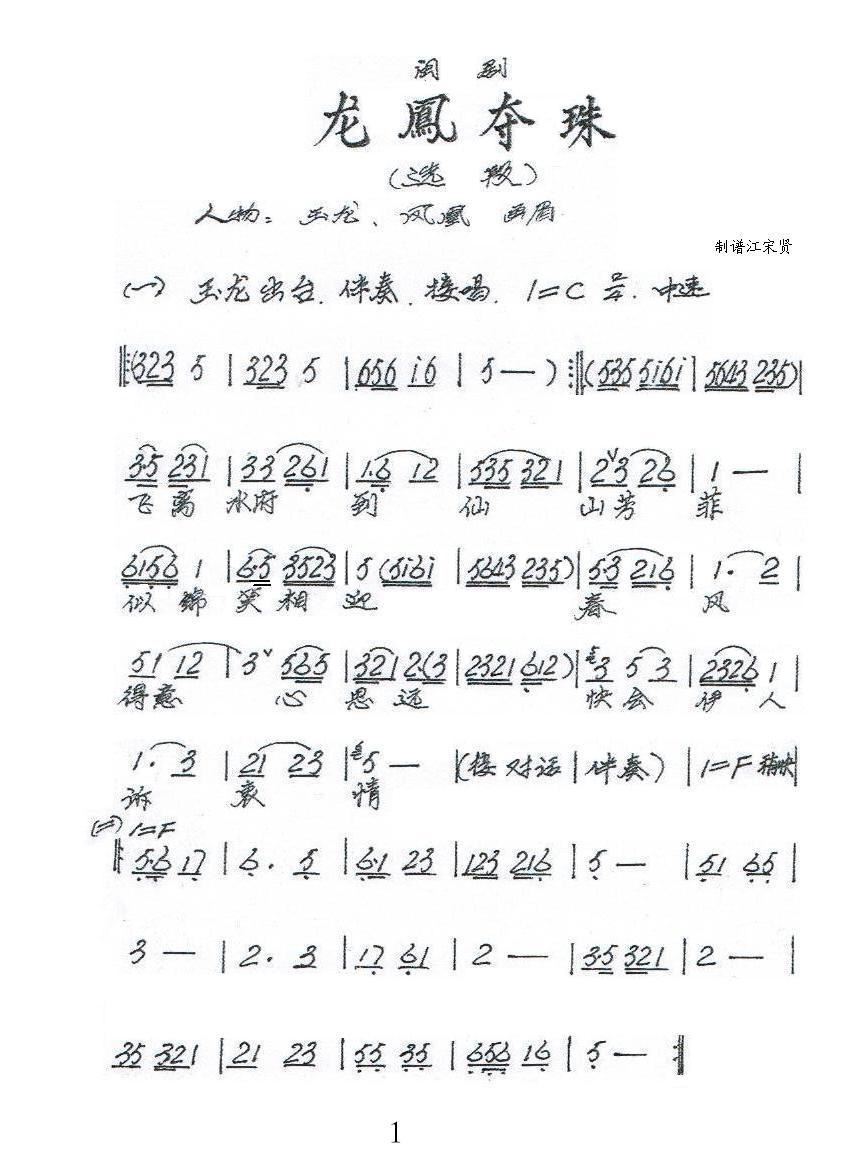 闽 剧
龙鳳夺珠
(选 段)
人物：玉龙、凤凰 画眉
制谱江宋贤
(一) 玉龙出台．伴奏．接唱．1=C 2/4．中速
‖:(323 5 | 323 5 | 656 i6 | 5 — ) :‖(535 5i6i | 5643 235) |
3·5 231 | 33 261 | 1·6 12 | 535 321 | 2ˇ3 26 | 1 — |
飞离 水府 到 仙 山芳 菲
6156 1 | 6·5 3523 | 5 (5i6i | 5643 235) | 5·3 216 | 1· 2 |
似锦 笑相 迎 春 风
51 12 | 3ˇ 565 | 321 2·(3 | 2321 612) | 3 5 3 | 2326 1 |
得意 心 思 远 快会 伊 人
1· 3 | 21 23 | 5 — | (接对话 | 伴奏) | 1=F 稍快 |
诉 衷 情
(二) 1=F
‖: 5·6 17 | 6· 5 | 6·1 23 | 123 216 | 5 — | 51 65 |
3 — | 2· 3 | 17 61 | 2 — | 3·5 321 | 2 — |
35 321 | 21 23 | 55 35 | 656 16 | 5 — :‖
1